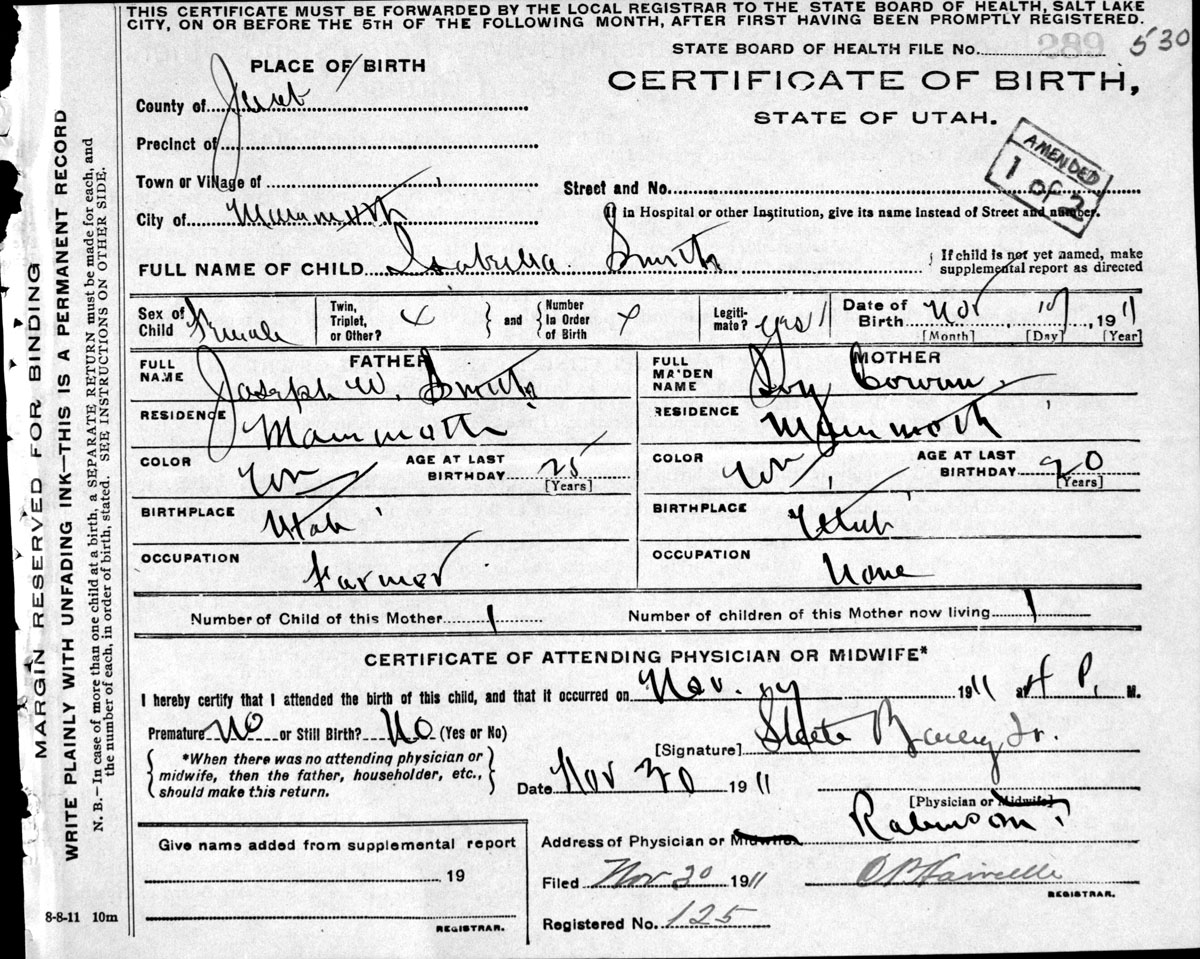 THIS CERTIFICATE MUST BE FORWARDED BY THE LOCAL REGISTRAR TO THE STATE BOARD OF HEALTH, SALT LAKE
CITY, ON OR BEFORE THE 5TH OF THE FOLLOWING MONTH, AFTER FIRST HAVING BEEN PROMPTLY REGISTERED.
STATE BOARD OF HEALTH FILE No. 530
PLACE OF BIRTH
CERTIFICATE OF BIRTH,
STATE OF UTAH.
County of Juab
Precinct of
AMENDED
1 of 2
Town or Village of
Street and No.
City of Mammoth
If in Hospital or other Institution, give its name instead of Street and number.
FULL NAME OF CHILD Isabella Smith
If child is not yet named, make
supplemental report as directed
Sex of Child Female
Twin, Triplet, or Other? x
and
Number in Order of Birth x
Legiti-mate? yes
Date of Birth Nov 19, 1911
[Month] [Day] [Year]
FATHER
FULL NAME Joseph W. Smith
MOTHER
FULL MAIDEN NAME Cowan
RESIDENCE Mammoth
RESIDENCE Mammoth
COLOR Wh
AGE AT LAST BIRTHDAY 25
[Years]
COLOR Wh
AGE AT LAST BIRTHDAY 20
[Years]
BIRTHPLACE Utah
BIRTHPLACE Utah
OCCUPATION Farmer
OCCUPATION None
Number of Child of this Mother 1
Number of children of this Mother now living 1
CERTIFICATE OF ATTENDING PHYSICIAN OR MIDWIFE*
I hereby certify that I attended the birth of this child, and that it occurred on Nov. 19 1911 at 4 P. M.
Premature No or Still Birth? No (Yes or No)
[Signature] Steele Bailey Jr.
*When there was no attending physician or
midwife, then the father, householder, etc.,
should make this return.
Date Nov 20 1911
[Physician or Midwife]
Address of Physician or Midwife Robinson
Give name added from supplemental report
19
REGISTRAR.
Filed Nov 20 1911
REGISTRAR.
Registered No. 125
8-8-11 10m
MARGIN RESERVED FOR BINDING
WRITE PLAINLY WITH UNFADING INK—THIS IS A PERMANENT RECORD
N. B.—In case of more than one child at a birth, a SEPARATE RETURN must be made for each, and
the number of each, in order of birth, stated. SEE INSTRUCTIONS ON OTHER SIDE.